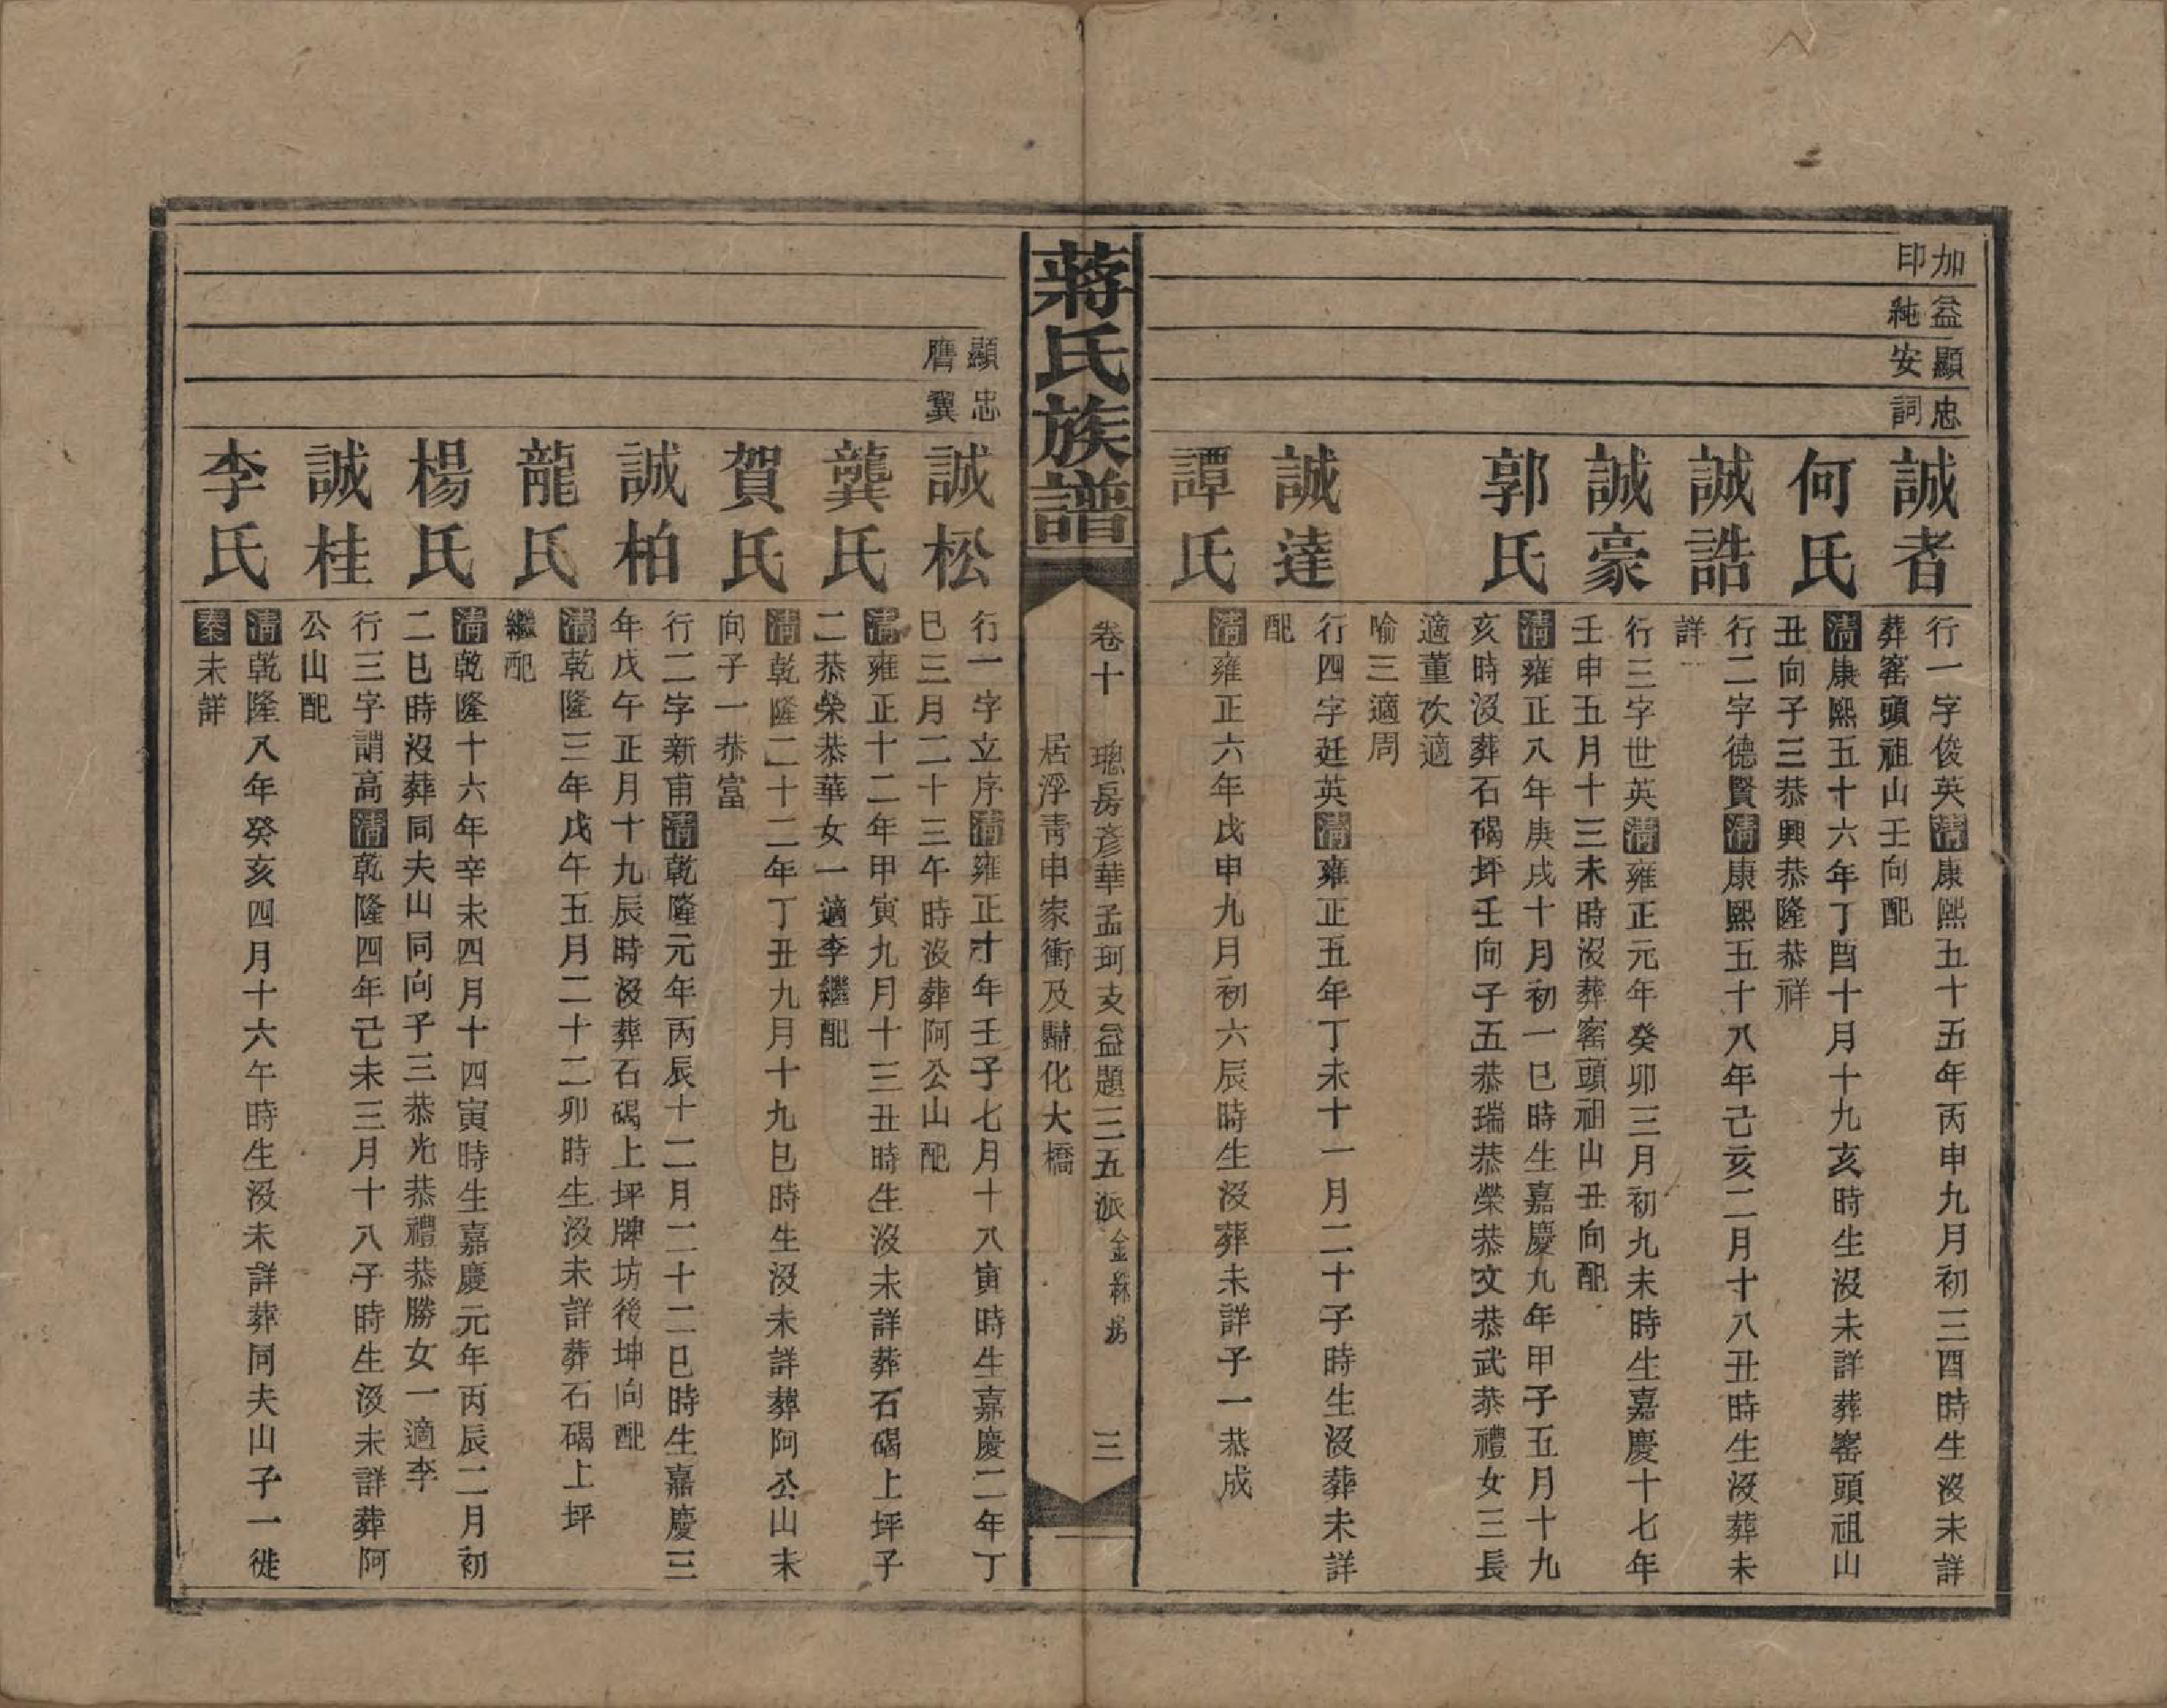 加印
益純
顯安
忠詞
誠者
行一字俊英清康熙五十五年丙申九月初三酉時生沒未詳
葬窰頭祖山壬向配
何氏
清康熙五十六年丁酉十月十九亥時生沒未詳葬窰頭祖山
丑向子三恭興恭隆恭祥
誠誥
行二字德賢清康熙五十八年己亥二月十八丑時生沒葬未
詳
誠豪
行三字世英清雍正元年癸卯三月初九未時生嘉慶十七年
壬申五月十三未時沒葬窰頭祖山丑向配
郭氏
清雍正八年庚戌十月初一巳時生嘉慶九年甲子五月十九
亥時沒葬石碣坪壬向子五恭瑞恭榮恭文恭武恭禮女三長
適董次適
喻三適周
誠達
行四字廷英清雍正五年丁未十一月二十子時生沒葬未詳
配
譚氏
清雍正六年戊申九月初六辰時生沒葬未詳子一恭成
蔣氏族譜
卷十
璁房彥華孟珂支益題三五派金森房
居浮靑申家衝及歸化大橋
三
顯膺
忠翼
誠松
行一字立序清雍正十年壬子七月十八寅時生嘉慶二年丁
巳三月二十三午時沒葬阿公山配
龔氏
清雍正十二年甲寅九月十三丑時生沒未詳葬石碣上坪子
二恭榮恭華女一適李繼配
賀氏
清乾隆二十二年丁丑九月十九巳時生沒未詳葬阿公山未
向子一恭富
誠柏
行二字新甫清乾隆元年丙辰十二月二十二巳時生嘉慶三
年戊午正月十九辰時沒葬石碣上坪牌坊後坤向配
龍氏
清乾隆三年戊午五月二十二卯時生沒未詳葬石碣上坪
繼配
楊氏
清乾隆十六年辛未四月十四寅時生嘉慶元年丙辰二月初
二巳時沒葬同夫山同向子三恭光恭禮恭勝女一適李
誠桂
行三字謂高清乾隆四年己未三月十八子時生沒未詳葬阿
公山配
李氏
清乾隆八年癸亥四月十六午時生沒未詳葬同夫山子一徙
秦未詳